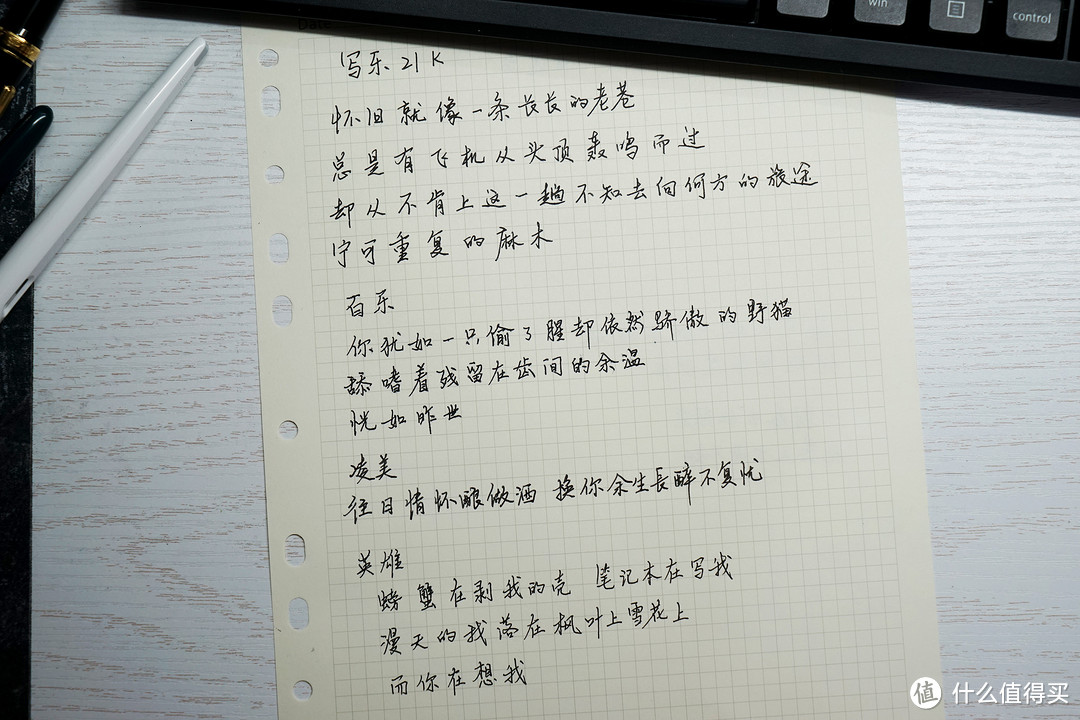 win
control
写乐 21K
怀旧就像一条长长的老巷
总是有飞机从头顶轰鸣而过
却从不肯上这一趟不知去向何方的旅途
宁可重复的麻木
百乐
你犹如一只偷了腥却依然骄傲的野猫
舔嗜着残留在齿间的余温
恍如昨世
凌美
往日情怀酿做酒 换你余生長醉不复忧
英雄
螃蟹在剥我的壳 笔记本在写我
漫天的我落在枫叶上雪花上
而你在想我
值 什么值得买